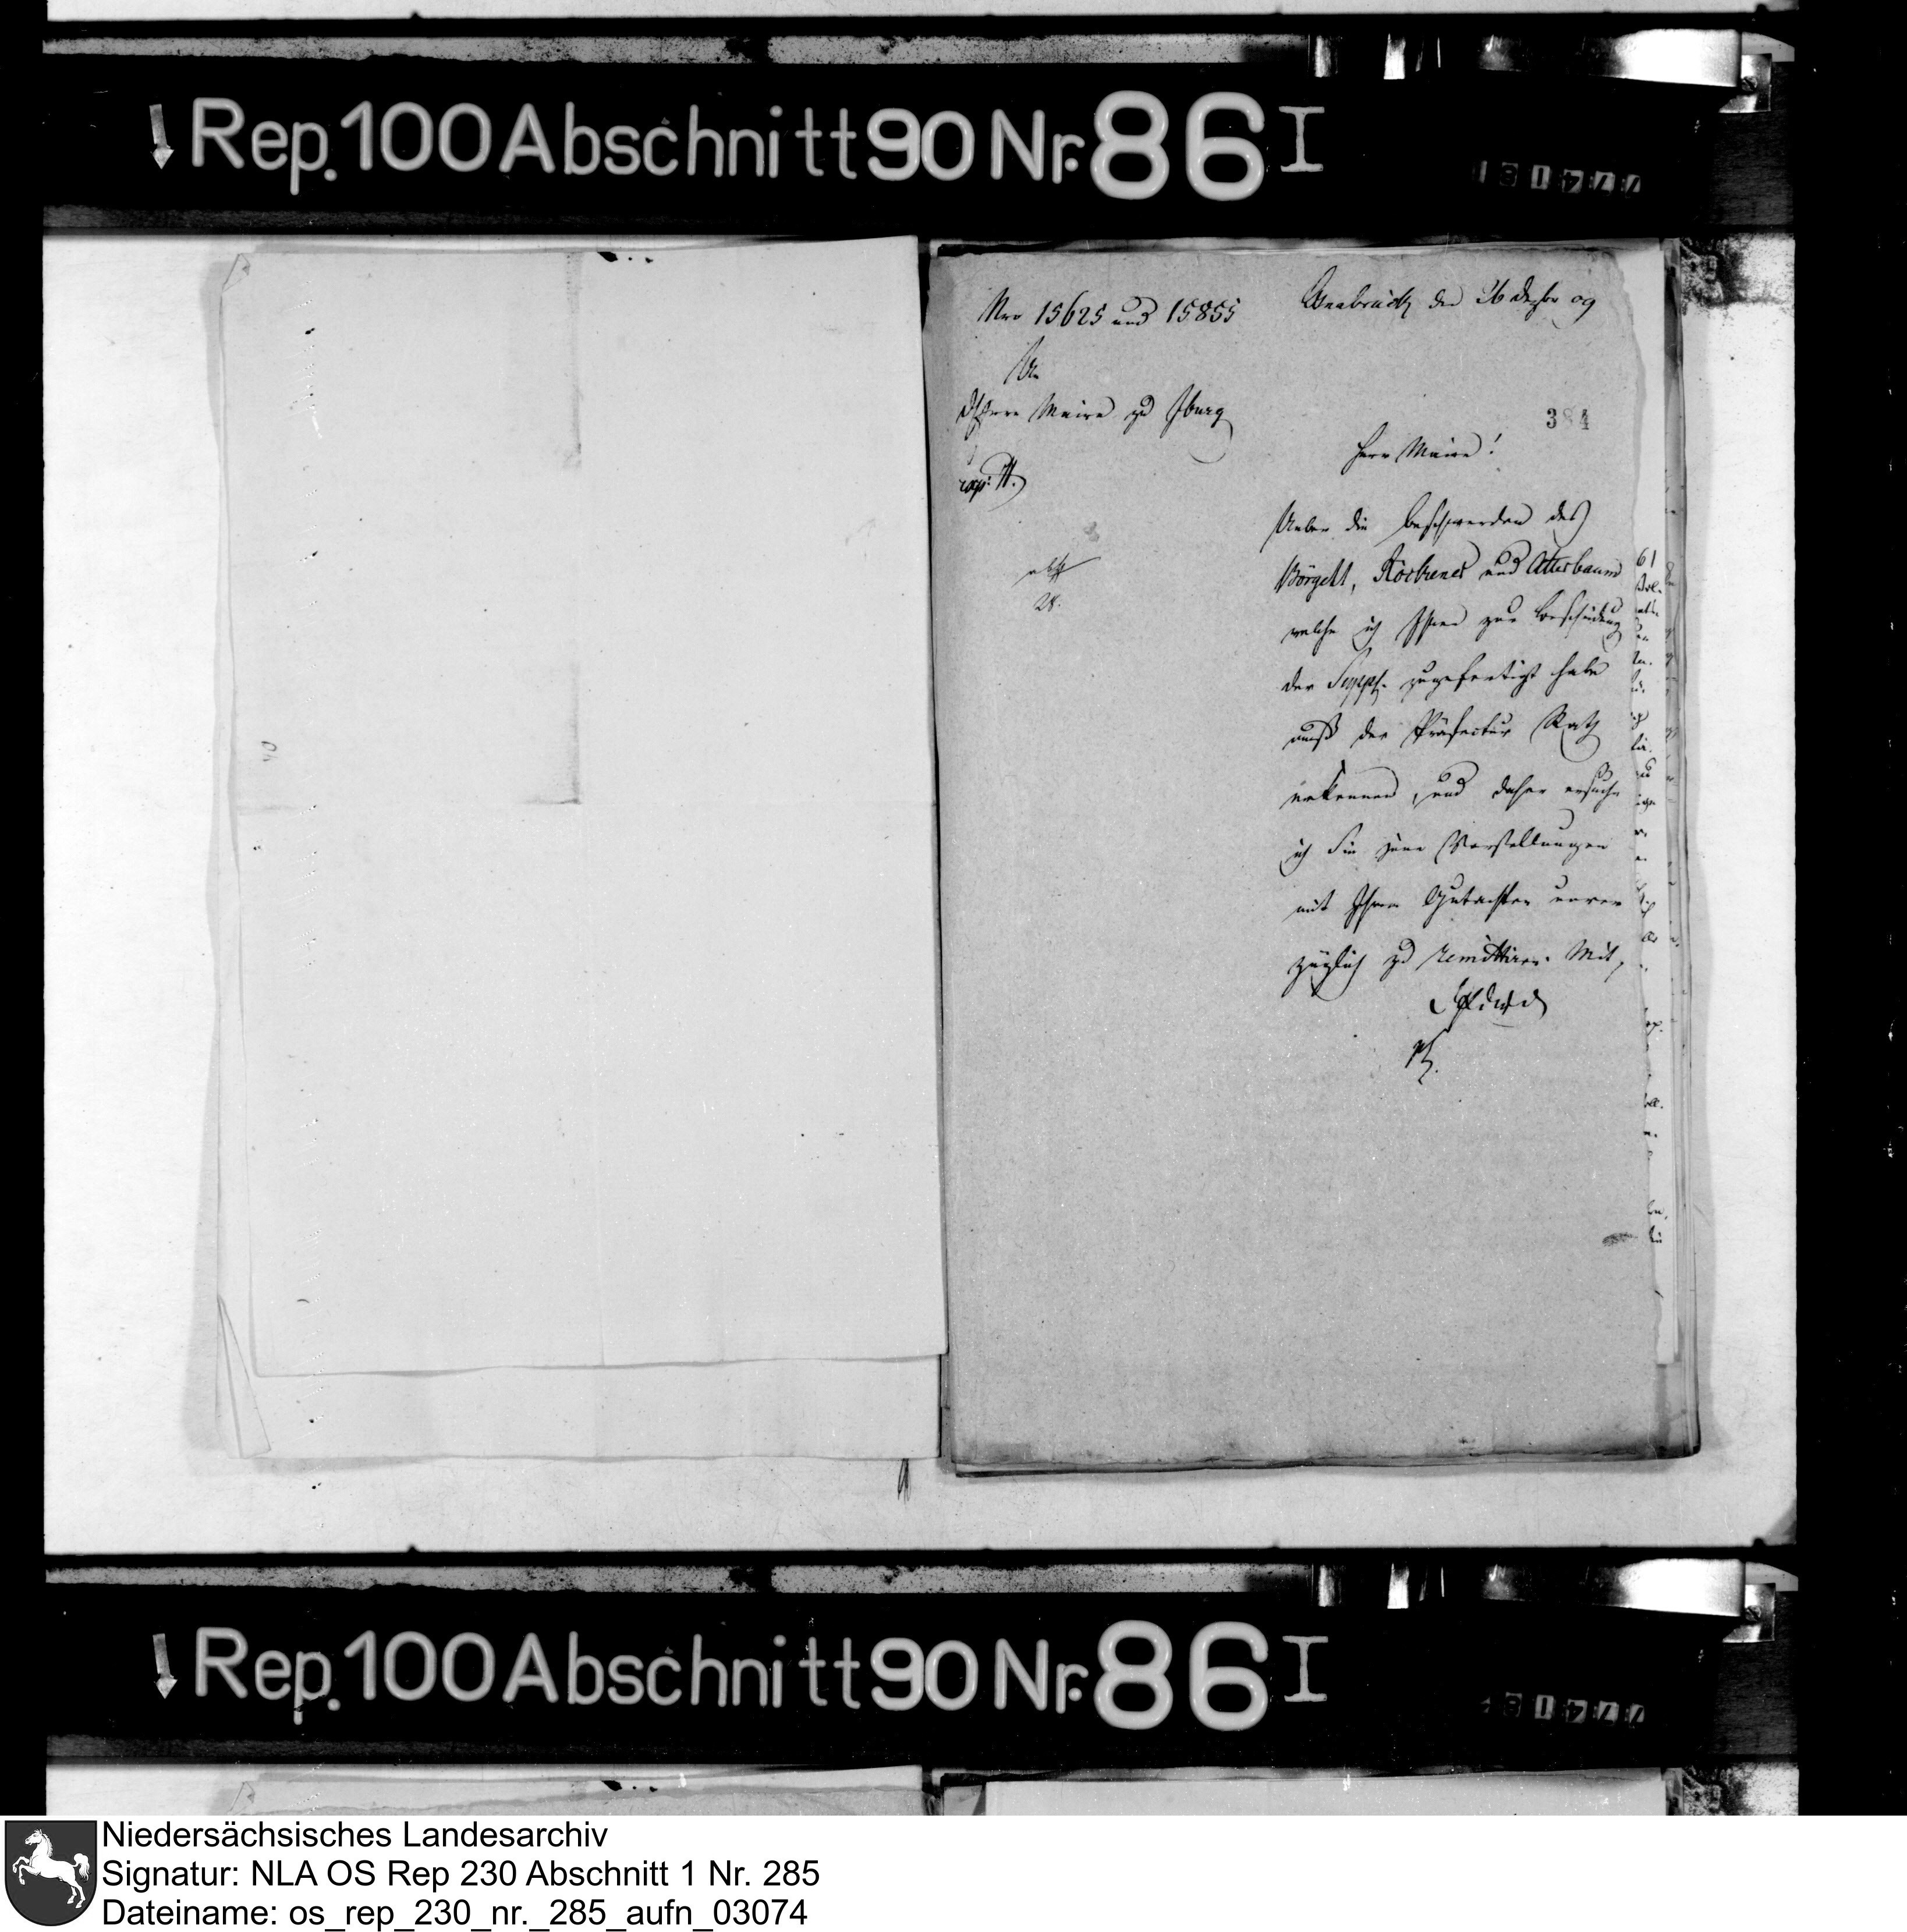 Rep. 100 Abschnitt 90 Nr. 86 I
Nro 15625 und 15855
Osnabrück den 26 Dezbr 09
An
d Herrn Maire zu Iburg
exp:
abg
28.
384
Herr Maire!
Ueber die Beschwerden des
Börgelt, Kockenes und Atterbaum
welche ich Ihnen zur Bescheidung
der Suppl. zugefertigt habe
muß der Präfectur Rath
erkennen, und daher ersuche
ich Sie jene Vorstellungen
mit Ihrem Gutachten unver
züglich zu remittiren. Mit,
61
Rep. 100 Abschnitt 90 Nr. 86 I
Niedersächsisches Landesarchiv
Signatur: NLA OS Rep 230 Abschnitt 1 Nr. 285
Dateiname: os_rep_230_nr._285_aufn_03074